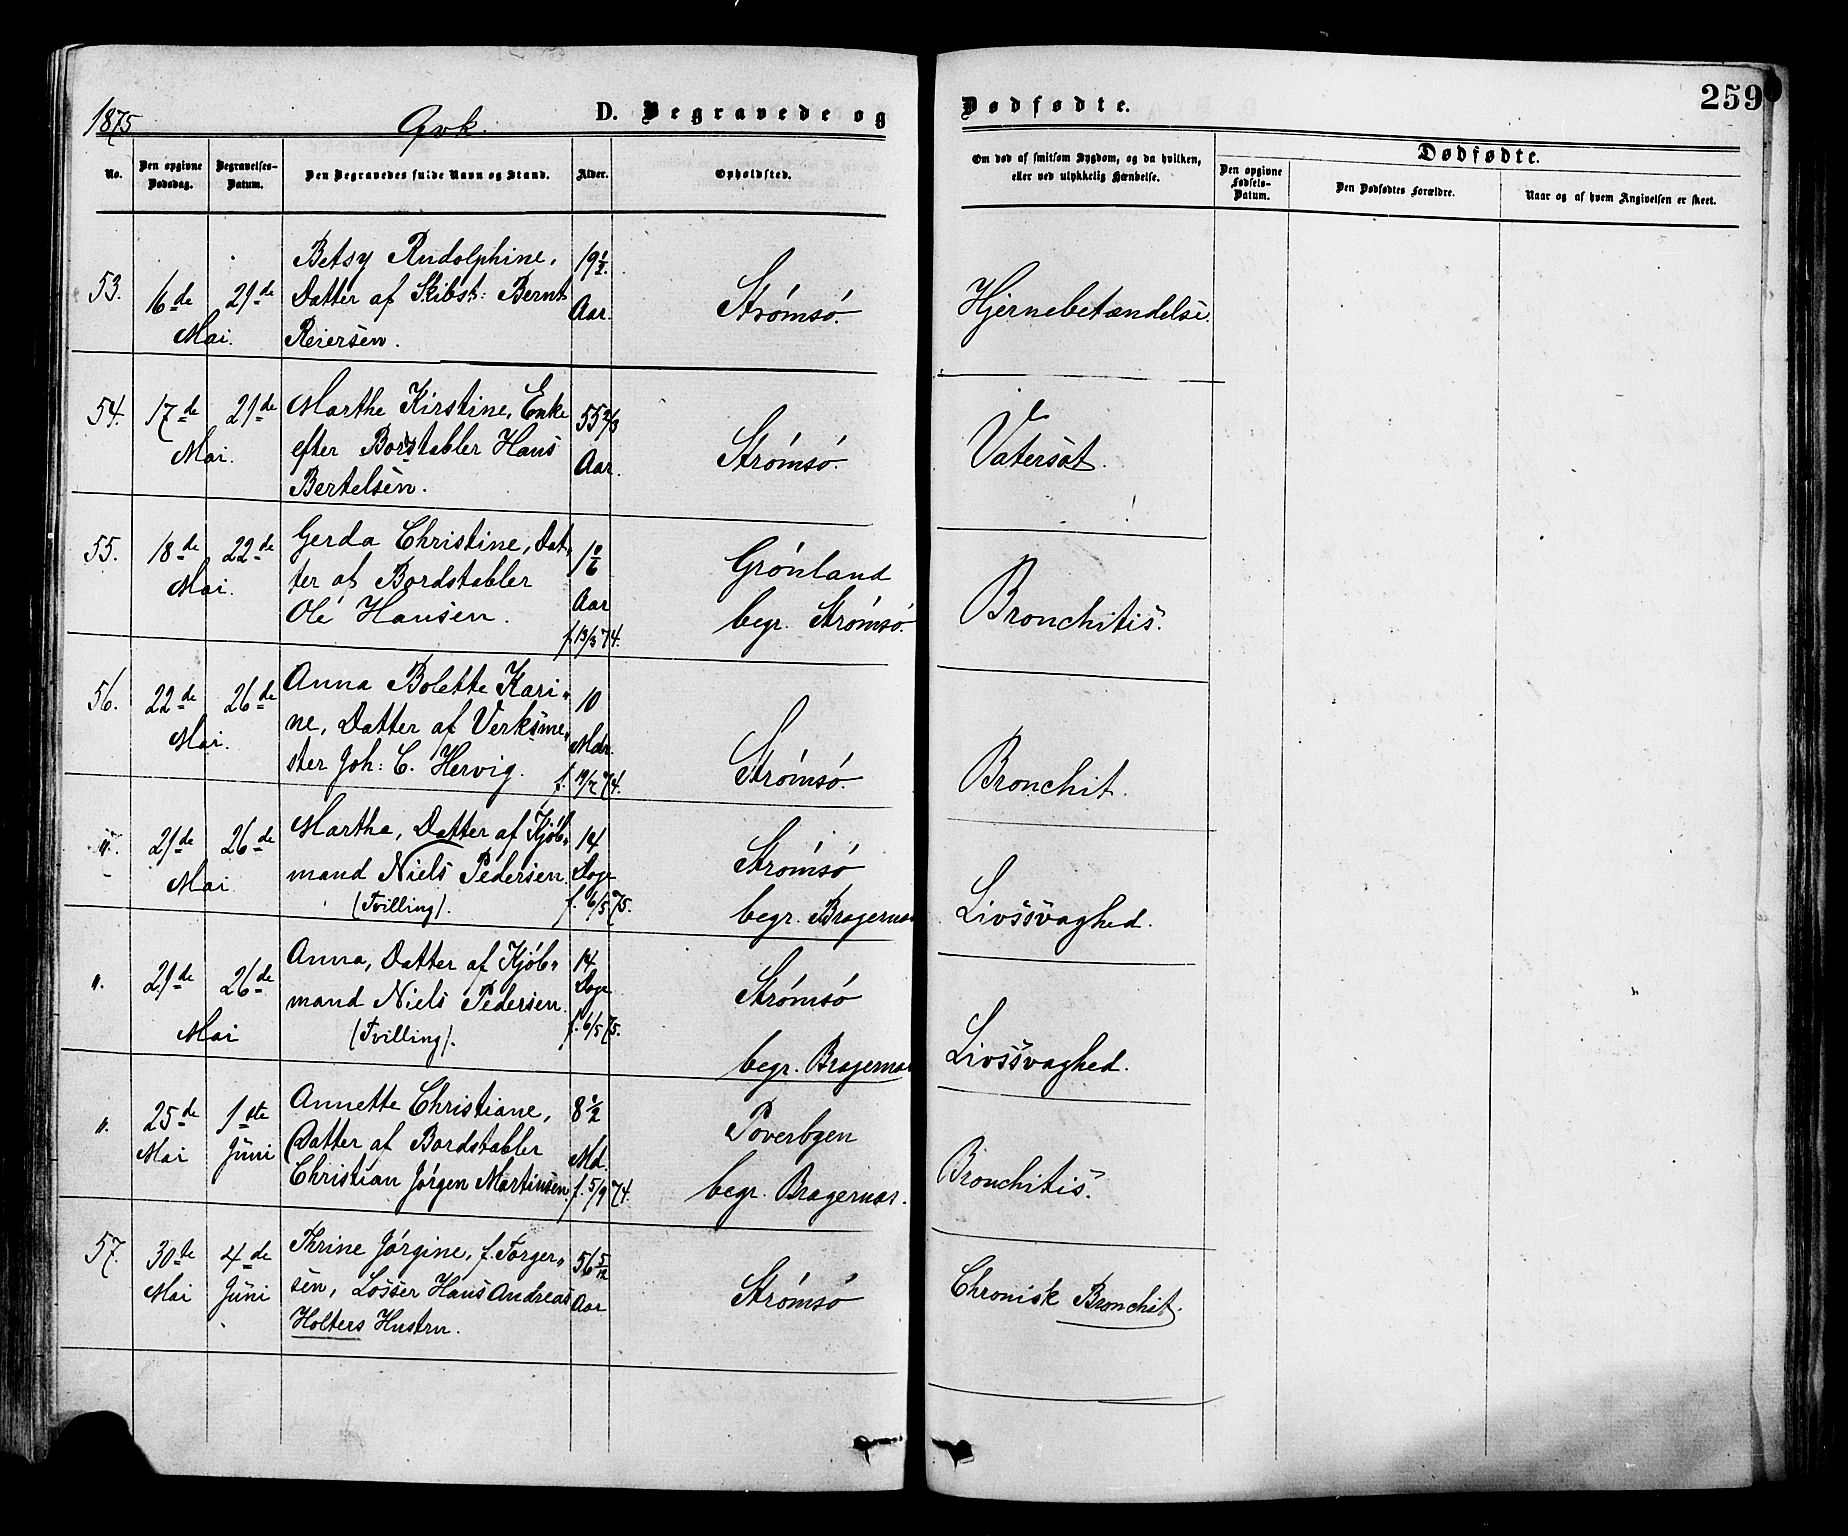 1875
Qvk.
D. Begravede og
Dødfødte.
259
No.
Den opgivne Dødsdag.
Begravelses-Datum.
Den Begravedes fulde Navn og Stand.
Alder.
Opholdsted.
Om død af smitsom Sygdom, og da hvilken, eller ved ulykkelig Hændelse.
Dødfødte.
Den opgivne Fødsels-Datum.
Den Dødfødtes Forældre.
Naar og af hvem Angivelsen er skeet.
53.
16de
21de
Mai.
Betsy Rudolphine,
Datter af Skibst: Bernt
Reiersen.
19½
Aar.
Strømsö.
Hjernebetændelse.
54.
17de
21de
Mai.
Marthe Kirstine, Enke
efter Bordstabler Hans
Bertelsen.
55 2/3
Aar.
Strømsö.
Vatersot.
55.
18de
22de
Mai.
Gerda Christine, Dat-
ter af Bordstabler
Ole Hansen.
1 1/6
Aar
f. 13/3 74.
Grönland
begr. Strømsö.
Bronchitis.
56.
22de
26de
Mai.
Anna Bolette Kari-
ne, Datter af Verksme-
ster Joh: C. Hervig.
10
Mdr.
f. 19/7 74.
Strømsö.
Bronchit.
".
21de
26de
Mai
Martha, Datter af Kjöb-
mand Niels Pedersen.
(Tvilling).
14
Dage
f. 6/5 75.
Strömsö
begr. Bragernæs
Livssvaghed.
".
21de
26de
Mai
Anna, Datter af Kjöb-
mand Niels Pedersen.
(Tvilling).
14
Dage
f. 6/5 75.
Strömsö
begr. Bragernæs
Livssvaghed.
".
25de
Mai
1ste
Juni
Annette Christiane,
Datter af Bordstabler
Christian Jörgen Martinsen.
8½
Md.
f. 5/9 74.
Toverbgen
begr. Bragernæs.
Bronchitis.
57.
30te
Mai
4de
Juni
Thrine Jörgine, f. Torger-
sen, Losser Hans Andreas
Holters Hustru.
56 5/12
Aar
Strömsö
Chronisk Bronchit.